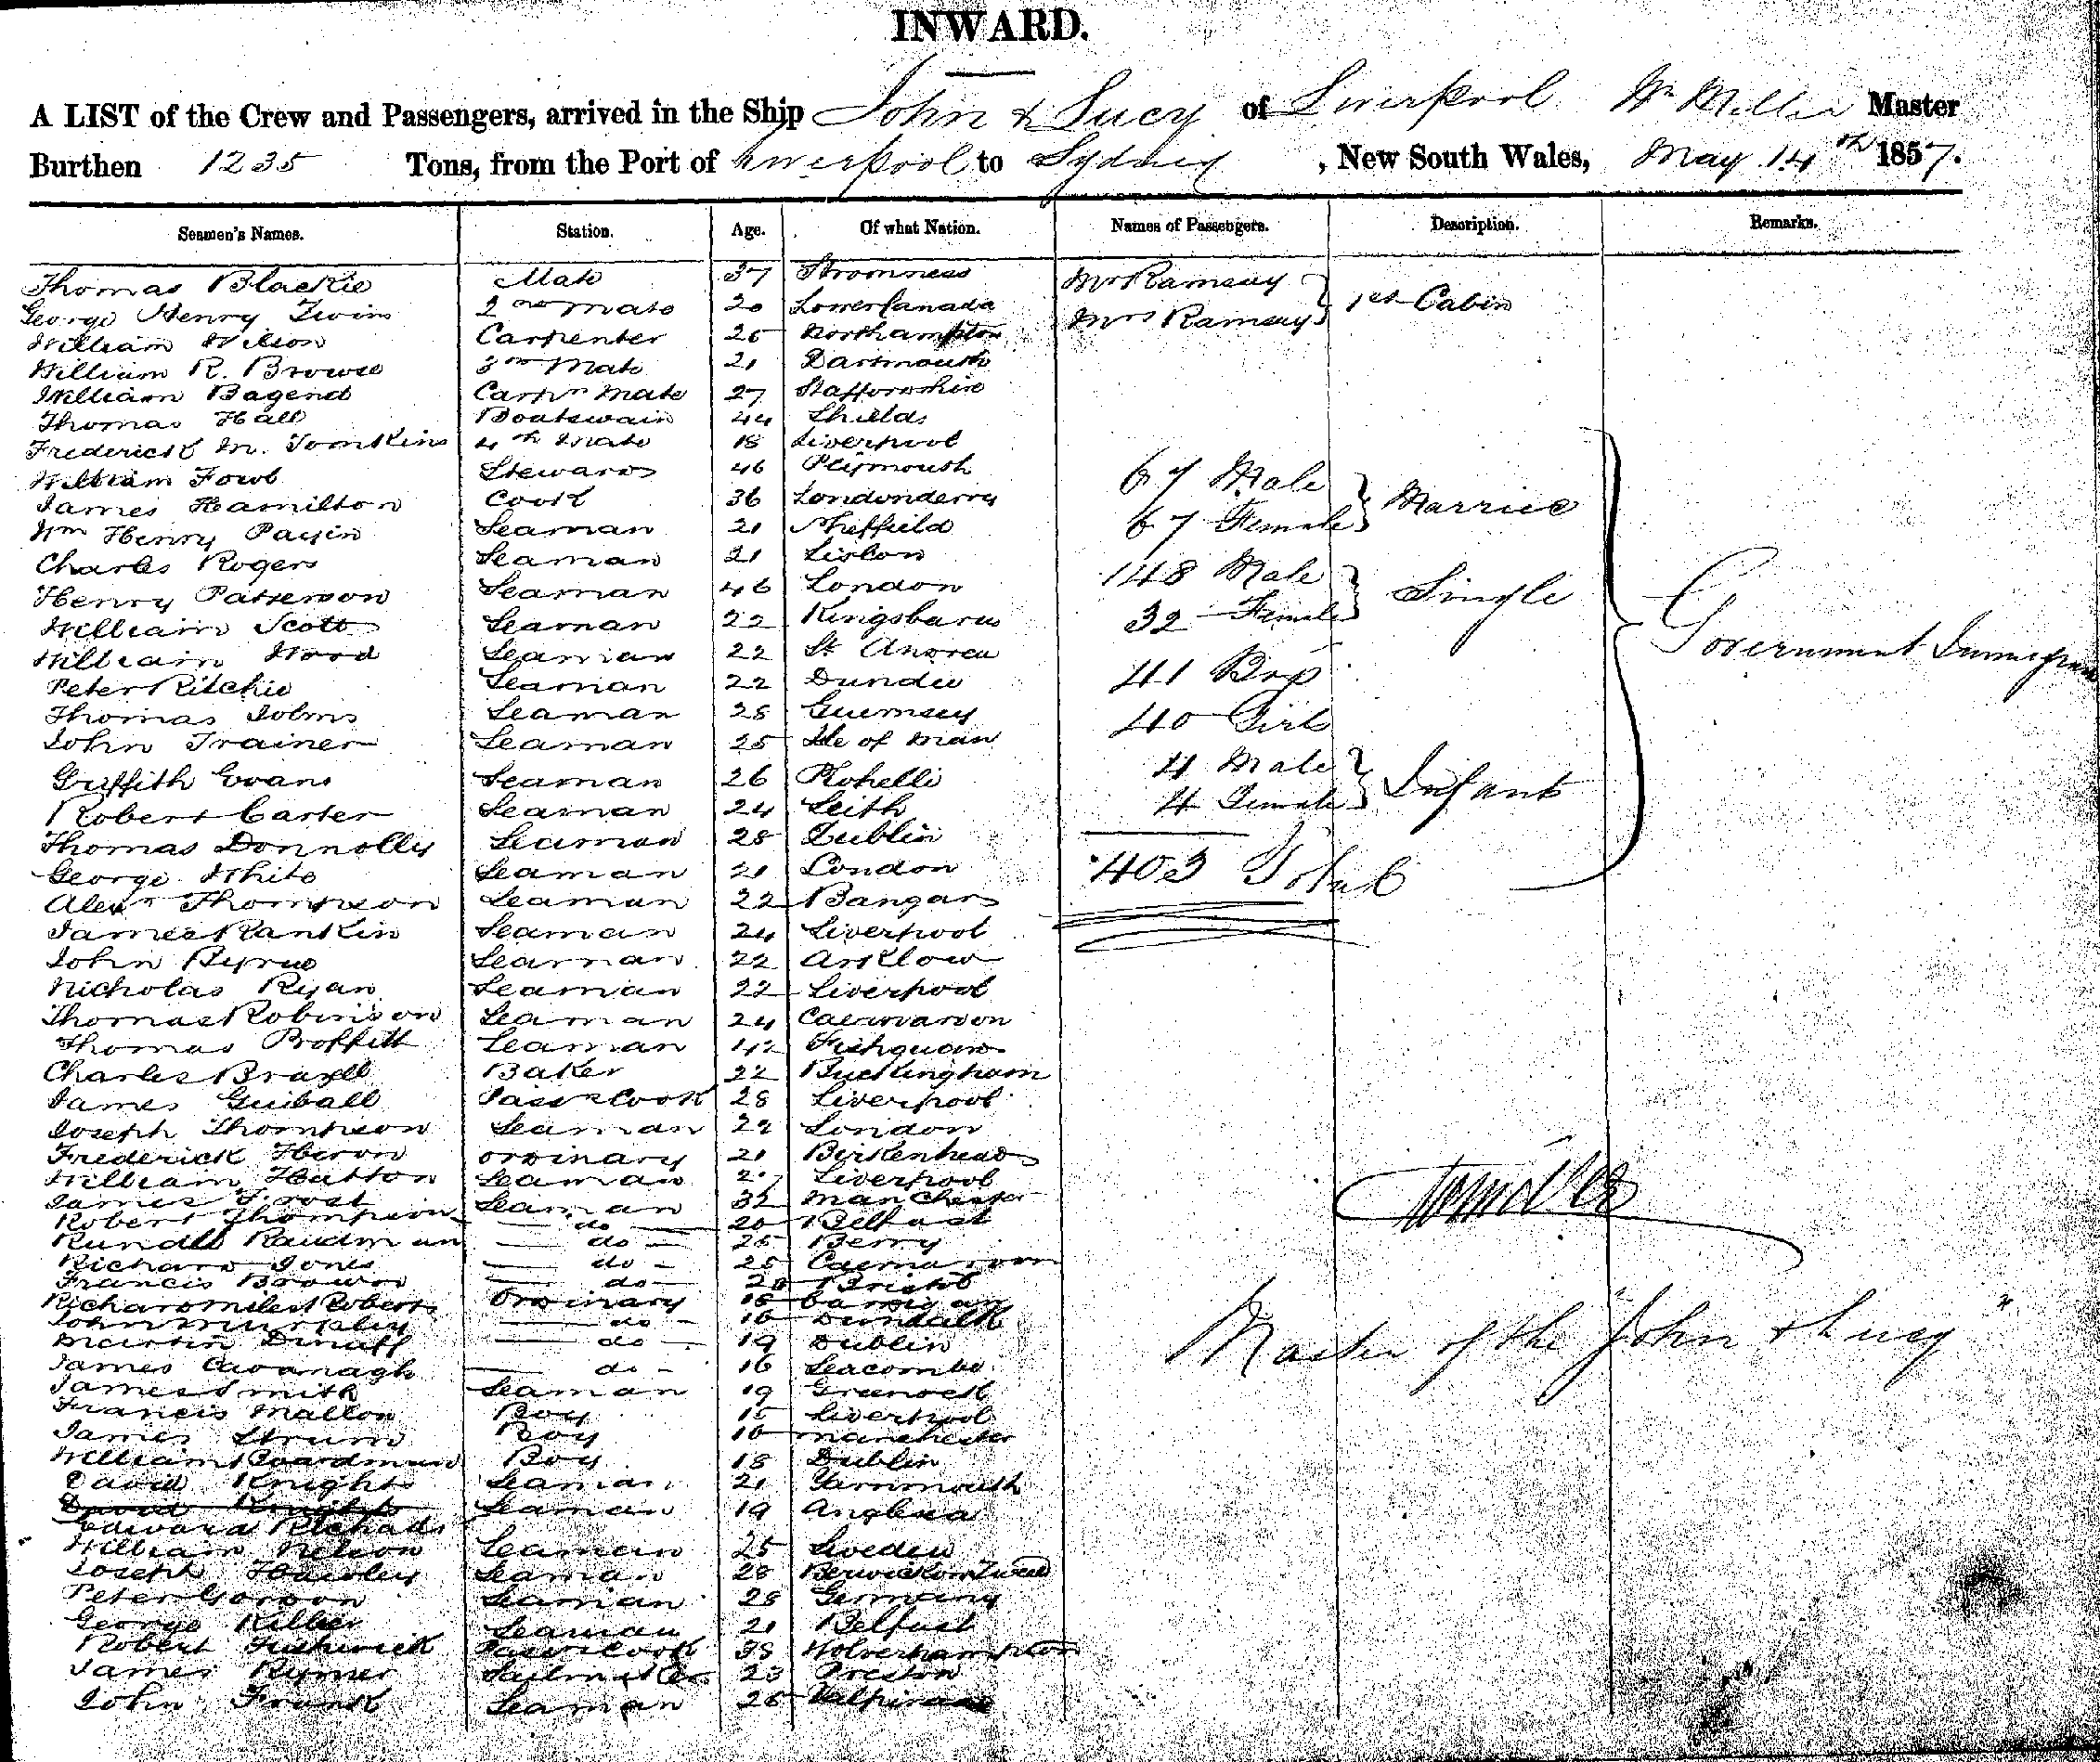 INWARD.
A LIST of the Crew and Passengers, arrived in the Ship John & Lucy of Liverpool Wm Miller Master
Burthen 1235 Tons, from the Port of Liverpool to Sydney, New South Wales, May 14th 1857.
Seamen's Names. Station. Age. Of what Nation. Names of Passengers. Description. Remarks.
Thomas Blackie Mate 37 Stromness Mr Ramsay
George Henry 2nd Mate 20 Lower Canada Mrs Ramsay 1st Cabin
William Wilson Carpenter 25 Northampton
William R. Browse 3rd Mate 21 Dartmouth
William Bagend Carpr Mate 27 Staffordshire
Thomas Hall Boatswain 44 Shields
Frederick M. Tomkins 4th Mate 18 Liverpool
William Fowl Steward 46 Plymouth 67 Male
James Hamilton Cook 36 Londonderry Married
Wm Henry Seaman 21 Sheffield 67 Female
Charles Rogers Seaman 21 Lisbon 148 Male
Henry Patterson Seaman 46 London Single
William Scott Seaman 22 32 Female
William Wood Seaman 22 St Andrew Government
Peter Ritchie Seaman 22 Dundee 41 Boys
Thomas Seaman 28 Guernsey 40 Girls
John Trainer Seaman 25 Isle of Man 4 Male
Griffith Evans Seaman 26 Infants
Robert Carter Seaman 24 Leith 4 Female
Thomas Donnolly Seaman 28 Dublin
George White Seaman 21 London 403 Total
Alexr Thompson Seaman 22 Bangor
James Rankin Seaman 24 Liverpool
John Byrne Seaman 22 Arklow
Nicholas Ryan Seaman 22 Liverpool
Thomas Robinson Seaman 24 Caernarvon
Thomas Seaman 42 Fishguard
Charles Braxell Baker 22 Buckingham
James Guiball Passr Cook 28 Liverpool
Joseph Thompson Seaman 22 London
Frederick Heron Ordinary 21 Birkenhead
William Hutton Seaman Liverpool
James Frost Seaman 32 Manchester
Robert Thompson do 20 Belfast
do 25
Richard Jones do 25 Caernarvon
Francis Brown do Bristol
Richard Miles Roberts Ordinary 18
John Murphy do 16 Dundalk
Martin do 19 Dublin
James Cavanagh do 16 Seacombe
James Smith Seaman 19 Greenock
Francis Mallon Boy 15 Liverpool
James Boy 16 Manchester
William Boardman Boy 18 Dublin
David Knight Seaman 21 Yarmouth
David Knight Seaman 19 Anglesea
Edward Richads
William Nelson Seaman 25 Sweden
Joseph Seaman 28 Berwick on Tweed
Peter Gordon Seaman 28 Germany
George Seaman 21 Belfast
Robert Passr Cook 38 Wolverhampton
James Rymer Sailmaker 23 Preston
John Frank Seaman 26
Master of the "John & Lucy"